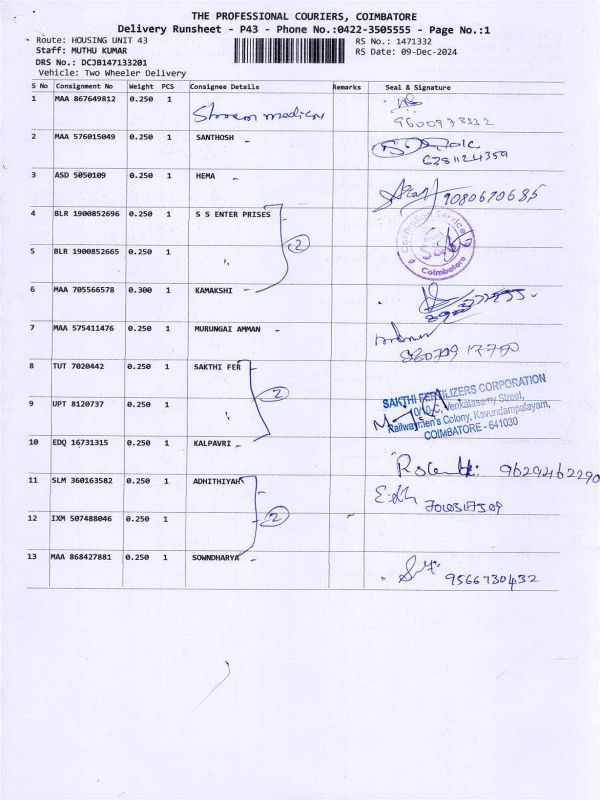 THE PROFESSIONAL COURIERS, COIMBATORE
Delivery Runsheet - P43 - Phone No.:0422-3505555 - Page No.:1
Route: HOUSING UNIT 43 RS No.: 1471332
Staff: MUTHU KUMAR RS Date: 09-Dec-2024
DRS No.: DCJB147133201
Vehicle: Two Wheeler Delivery
S No Consignment No Weight PCS Consignee Details Remarks Seal & Signature
1 MAA 867649812 0.250 1
2 MAA 576015049 0.250 1 SANTHOSH -
6381124359
3 ASD 5050109 0.250 1 HEMA -
9080670685
4 BLR 1900852696 0.250 1 S S ENTER PRISES
2
Calibration Service
Coimbatore
5 BLR 1900852665 0.250 1 "
6 MAA 705566578 0.300 1 KAMAKSHI -
7 MAA 575411476 0.250 1 MURUNGAI AMMAN -
8 TUT 7020442 0.250 1 SAKTHI FER
2
SAKTHI FERTILIZERS CORPORATION
10/10-C, Venkatasamy Street,
Railwaymen's Colony, Kavundampalayam,
COIMBATORE - 641030
9 UPT 8120737 0.250 1 "
10 EDQ 16731315 0.250 1 KALPAVRI -
9629462290
11 SLM 360163582 0.250 1 ADHITHIYAH
7010517509
12 IXM 507488046 0.250 1 2
13 MAA 868427881 0.250 1 SOWNDHARYA -
9566730432